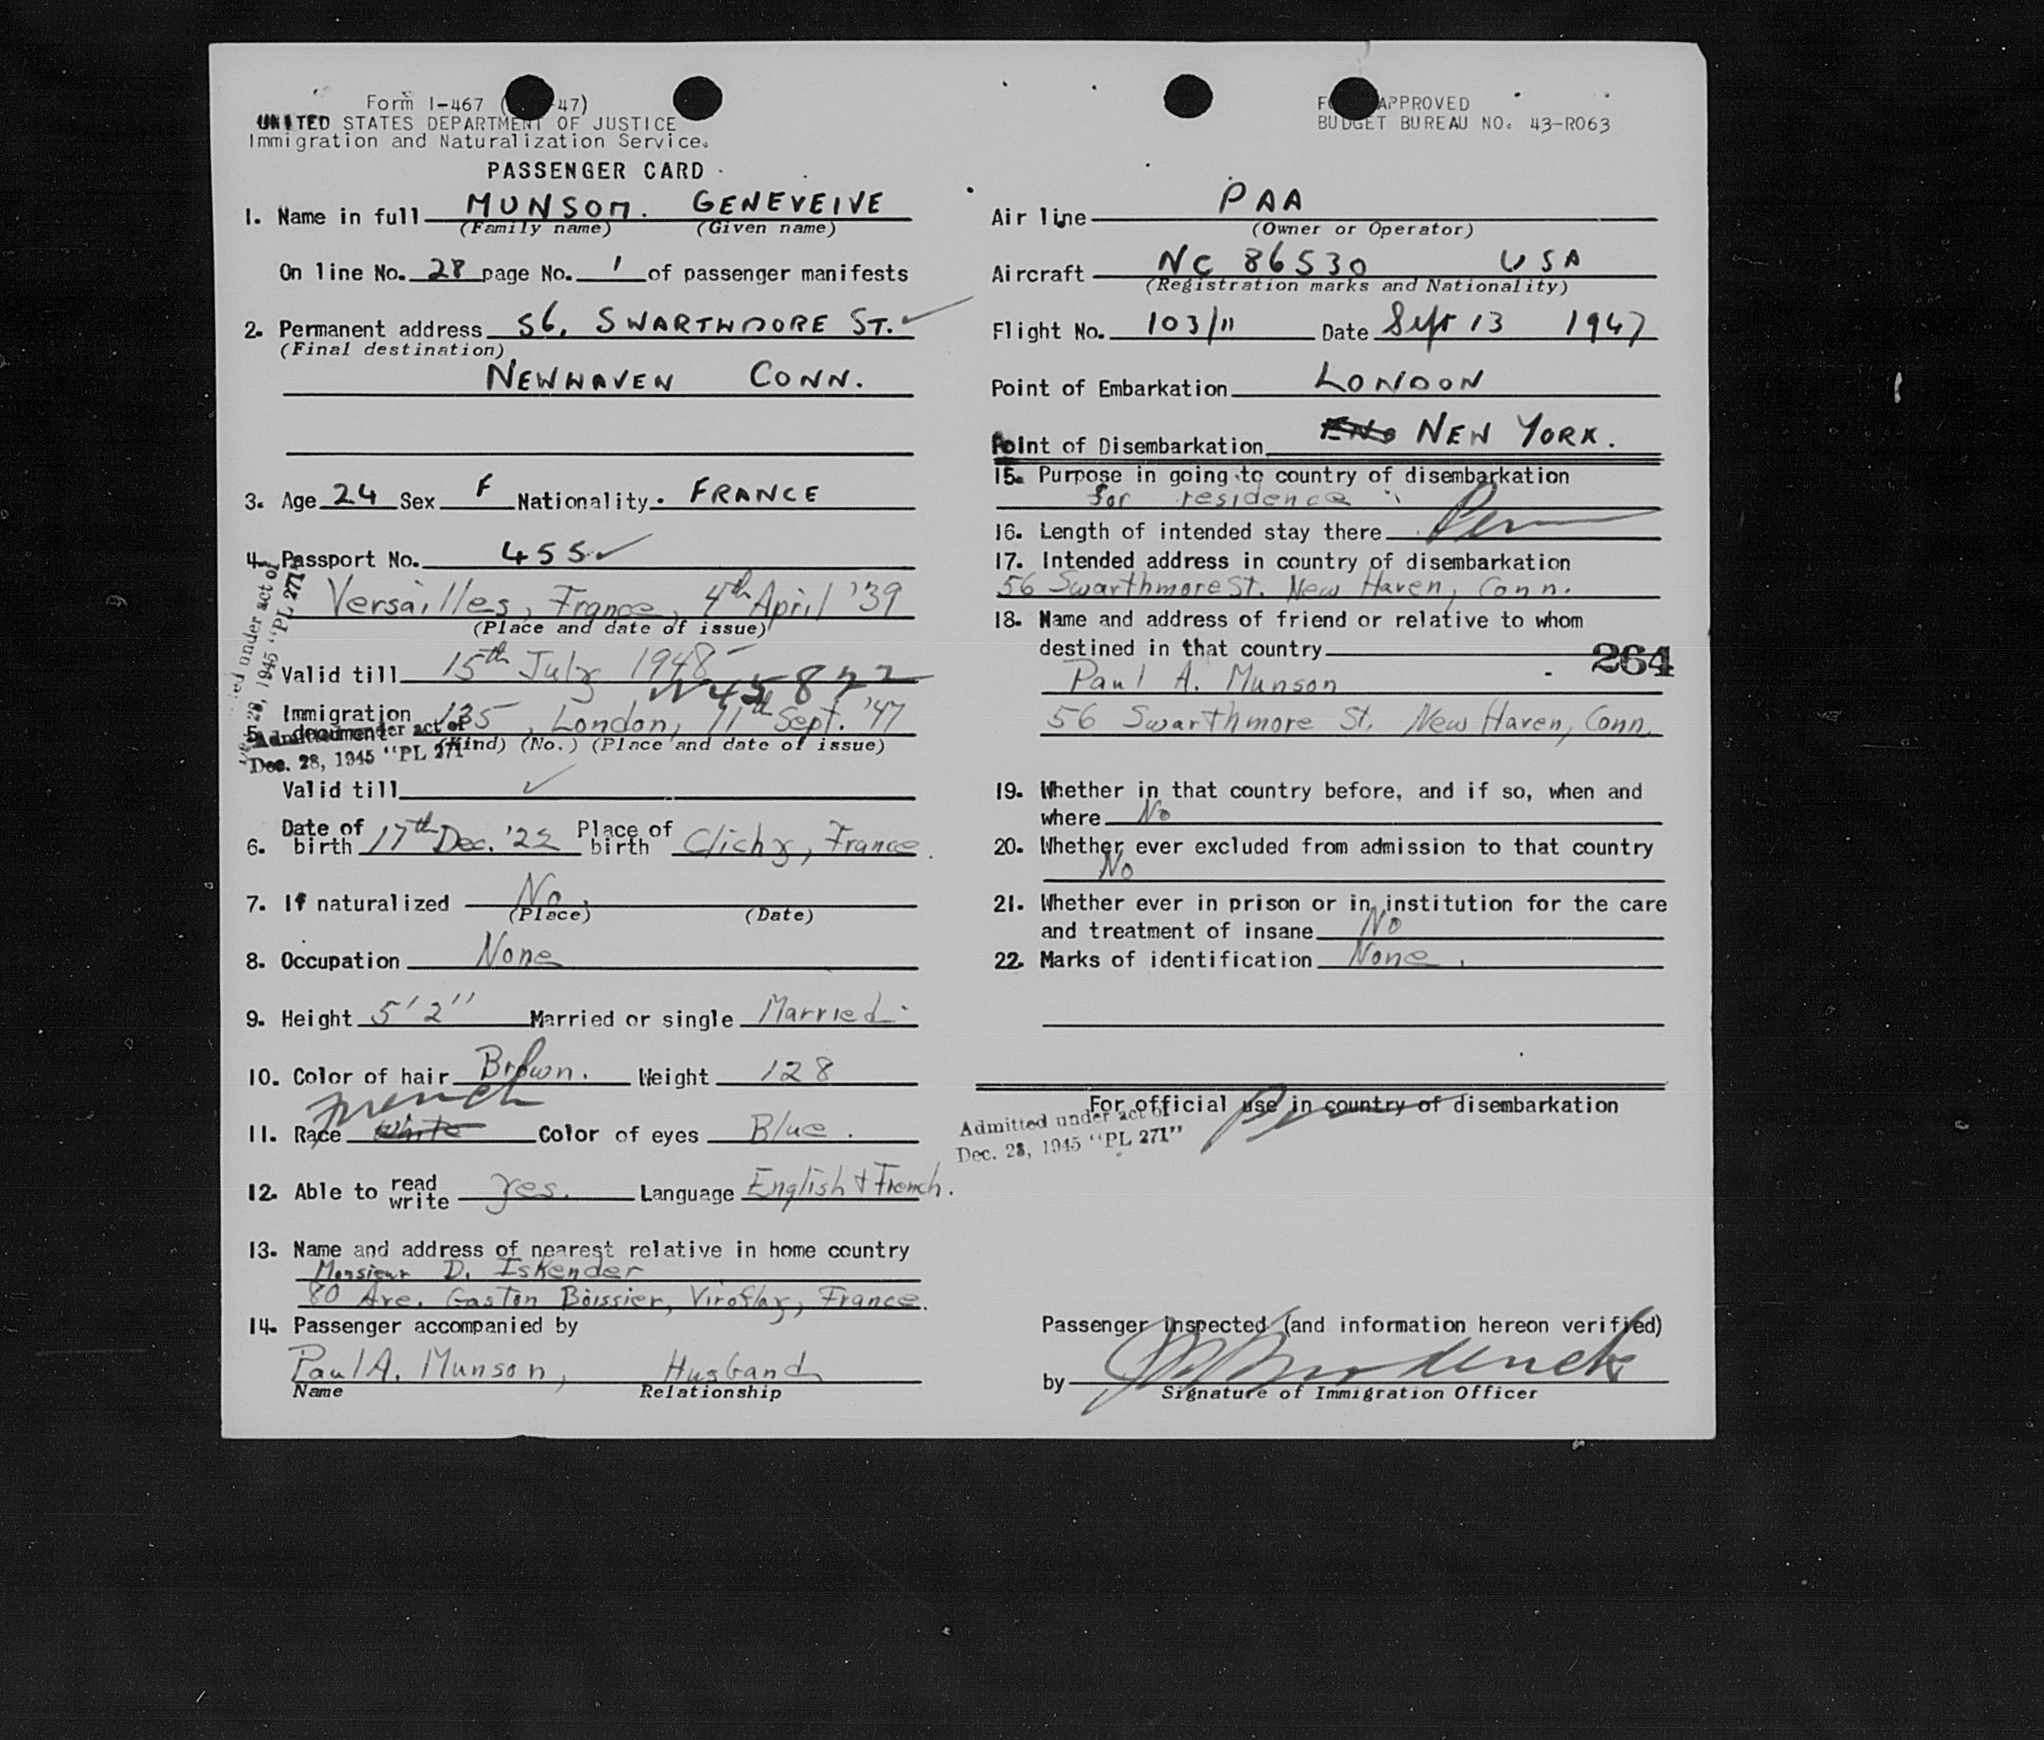 Form I-467 ( -47)
UNITED STATES DEPARTMENT OF JUSTICE
Immigration and Naturalization Service.
PASSENGER CARD
1. Name in full MUNSON. GENEVEIVE
(Family name) (Given name)
On line No. 28 page No. 1 of passenger manifests
2. Permanent address 56, SWARTHMORE ST.
(Final destination)
NEWHAVEN CONN.
3. Age 24 Sex F Nationality. FRANCE
4. Passport No. 455
Versailles, France, 4th April '39
(Place and date of issue)
Valid till 15th July 1948
Immigration
5. document 135, London, 11th Sept. '47
(Kind) (No.) (Place and date of issue)
Admitted under act of
Dec. 28, 1945 "PL 271"
Valid till
6. Date of birth 17th Dec. '22 Place of birth Clichy, France.
7. If naturalized No
(Place) (Date)
8. Occupation None
9. Height 5'2" Married or single Married
10. Color of hair Brown. Weight 128
French
11. Race White Color of eyes Blue.
12. Able to read write yes. Language English + French.
13. Name and address of nearest relative in home country
Monsieur D. Iskender
80 Ave. Gaston Boissier, Viroflay, France.
14. Passenger accompanied by
Paul A. Munson, Husband
Name Relationship
APPROVED
BUDGET BUREAU NO. 43-R063
Air line PAA
(Owner or Operator)
Aircraft NC 86530 USA
(Registration marks and Nationality)
Flight No. 103/11 Date Sept 13 1947
Point of Embarkation LONDON
Point of Disembarkation NEW YORK.
15. Purpose in going to country of disembarkation
for residence
16. Length of intended stay there Perm
17. Intended address in country of disembarkation
56 Swarthmore St. New Haven, Conn.
18. Name and address of friend or relative to whom
destined in that country
264
Paul A. Munson
56 Swarthmore St. New Haven, Conn.
19. Whether in that country before, and if so, when and
where No
20. Whether ever excluded from admission to that country
No
21. Whether ever in prison or in institution for the care
and treatment of insane No
22. Marks of identification None.
For official use in country of disembarkation
Admitted under act of
Dec. 28, 1945 "PL 271"
Passenger inspected (and information hereon verified)
by
Signature of Immigration Officer